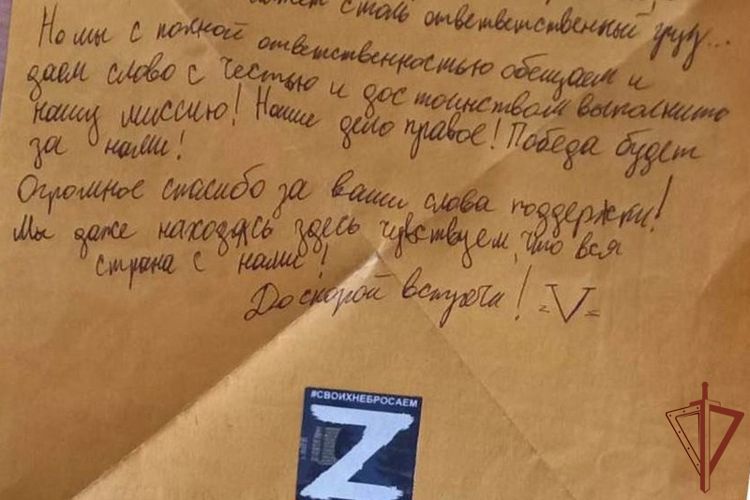 столь ответветственный груз...
Но мы с полной ответственностью обещаем и
даем слово с честью и достоинством выполнить
нашу миссию! Наше дело правое! Победа будет
за нами!
Огромное спасибо за ваши слова поддержки!
Мы даже находясь здесь чувствуем, что вся
страна с нами!
До скорой встречи! =V=
#СВОИХНЕБРОСАЕМ
Z